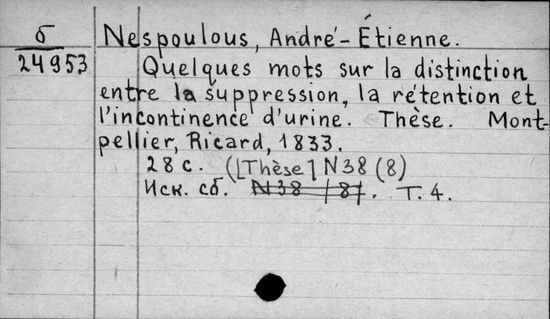 б
24953
Nespoulous, André-Étienne.
Quelques mots sur la distinction
entre la suppression, la rétention et
l'incontinence d'urine. Thèse. Mont-
pellier, Ricard, 1833.
28 c. ([Thèse] N38 (8)
Иск. сб. N 38 /8/. Т. 4.